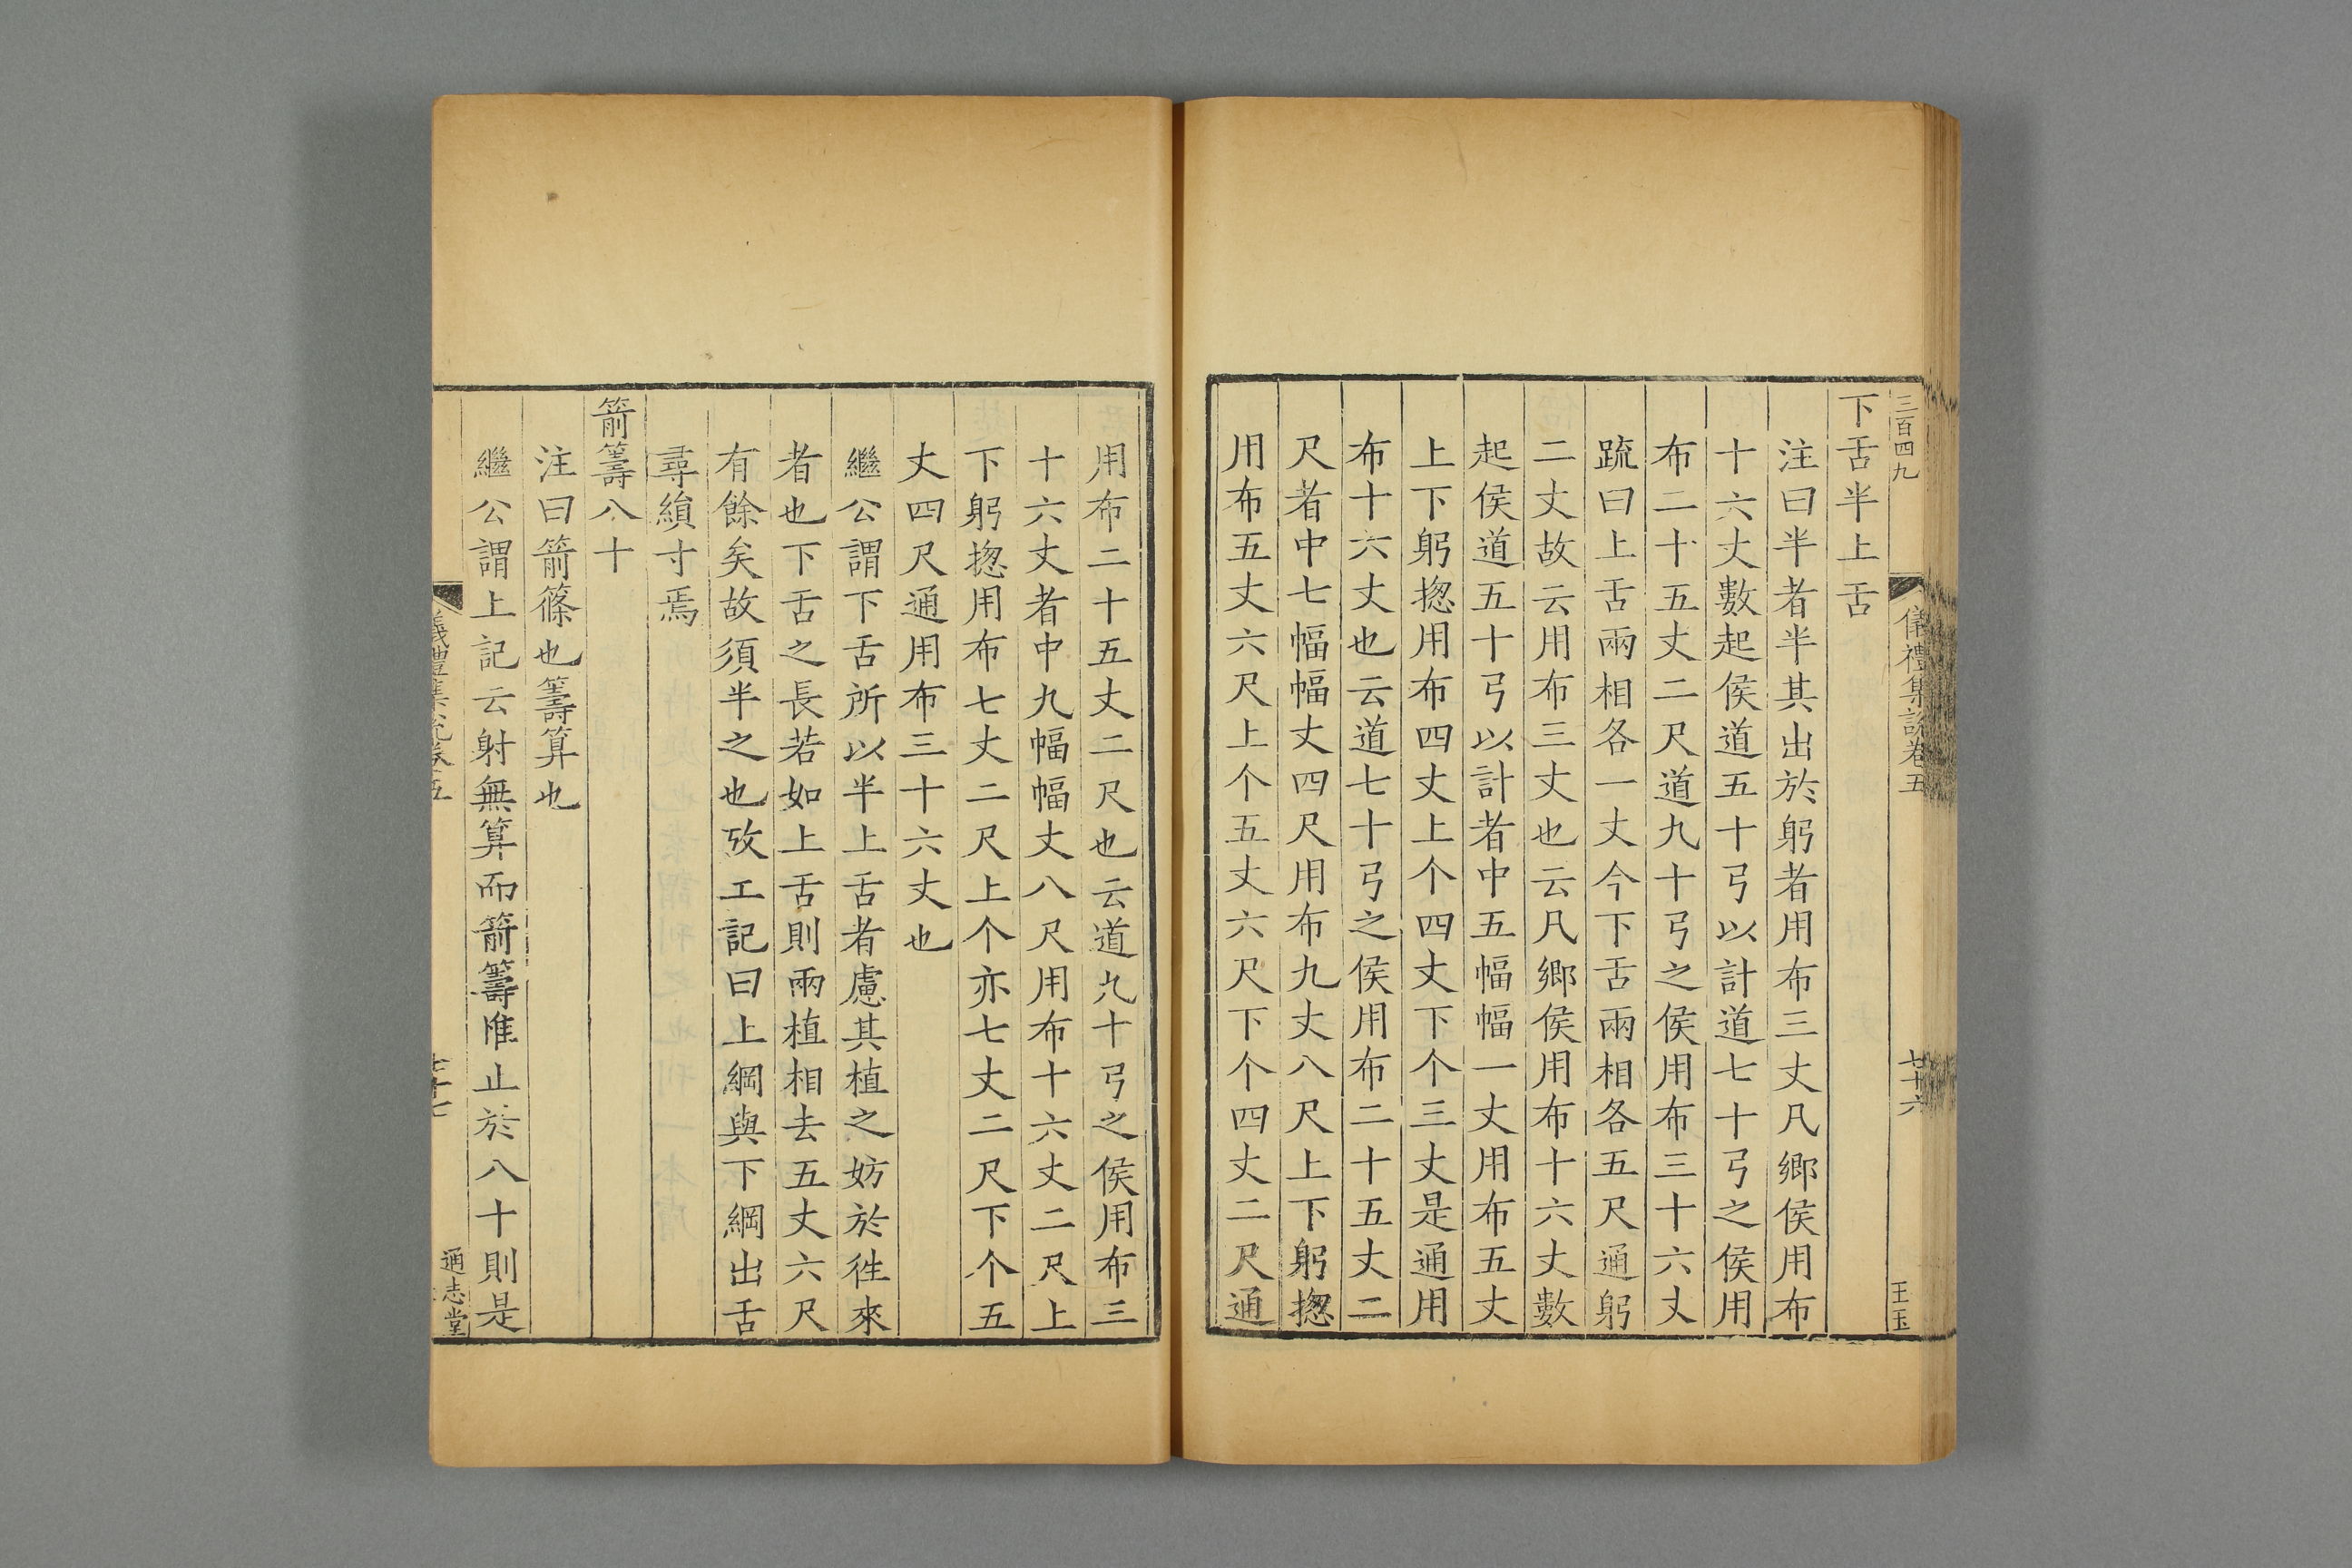 三百四九
儀禮集說卷五
七十六
王玉
下舌半上舌
注曰半者半其出於躬者用布三丈凡鄉侯用布
十六丈數起侯道五十弓以計道七十弓之侯用
布二十五丈二尺道九十弓之侯用布三十六丈
䟽曰上舌兩相各一丈今下舌兩相各五尺通躬
二丈故云用布三丈也云凡鄉侯用布十六丈數
起侯道五十弓以計者中五幅幅一丈用布五丈
上下躬揔用布四丈上个四丈下个三丈是通用
布十六丈也云道七十弓之侯用布二十五丈二
尺者中七幅幅丈四尺用布九丈八尺上下躬揔
用布五丈六尺上个五丈六尺下个四丈二尺通
用布二十五丈二尺也云道九十弓之侯用布三
十六丈者中九幅幅丈八尺用布十六丈二尺上
下躬揔用布七丈二尺上个亦七丈二尺下个五
丈四尺通用布三十六丈也
繼公謂下舌所以半上舌者慮其植之妨於徃來
者也下舌之長若如上舌則兩植相去五丈六尺
有餘矣故須半之也攷工記曰上綱與下綱出舌
尋縜寸焉
箭籌八十
注曰箭篠也籌算也
繼公謂上記云射無算而箭籌惟止於八十則是
儀禮集說卷五
七十七
通志堂